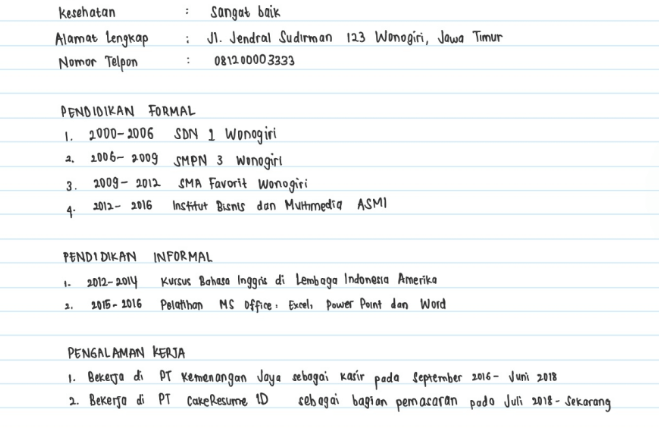 Kesehatan : Sangat baik
Alamat Lengkap : Jl. Jendral Sudirman 123 Wonogiri, Jawa Timur
Nomor Telpon : 081200003333
PENDIDIKAN FORMAL
1. 2000-2006 SDN 1 Wonogiri
2. 2006-2009 SMPN 3 Wonogiri
3. 2009-2012 SMA Favorit Wonogiri
4. 2012-2016 Institut Bisnis dan Multimedia ASMI
PENDIDIKAN INFORMAL
1. 2012-2014 Kursus Bahasa Inggris di Lembaga Indonesia Amerika
2. 2015-2016 Pelatihan MS Office, Excel, Power Point dan Word
PENGALAMAN KERJA
1. Bekerja di PT Kemenangan Jaya sebagai kasir pada September 2016- Juni 2018
2. Bekerja di PT CakeResume ID sebagai bagian pemasaran pada Juli 2018-Sekarang